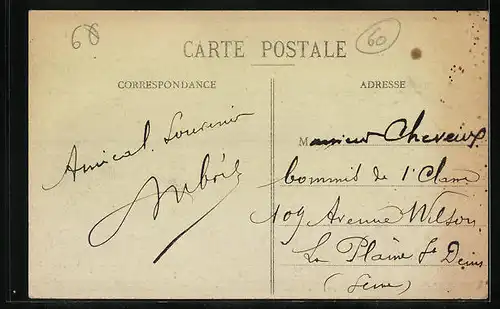 68
60
CARTE POSTALE
CORRESPONDANCE
ADRESSE
Amical Souvenir
Monsieur Cheveux
Commis de 1e Classe
109 Avenue Wilson
La Plaine St Denis
(Seine)